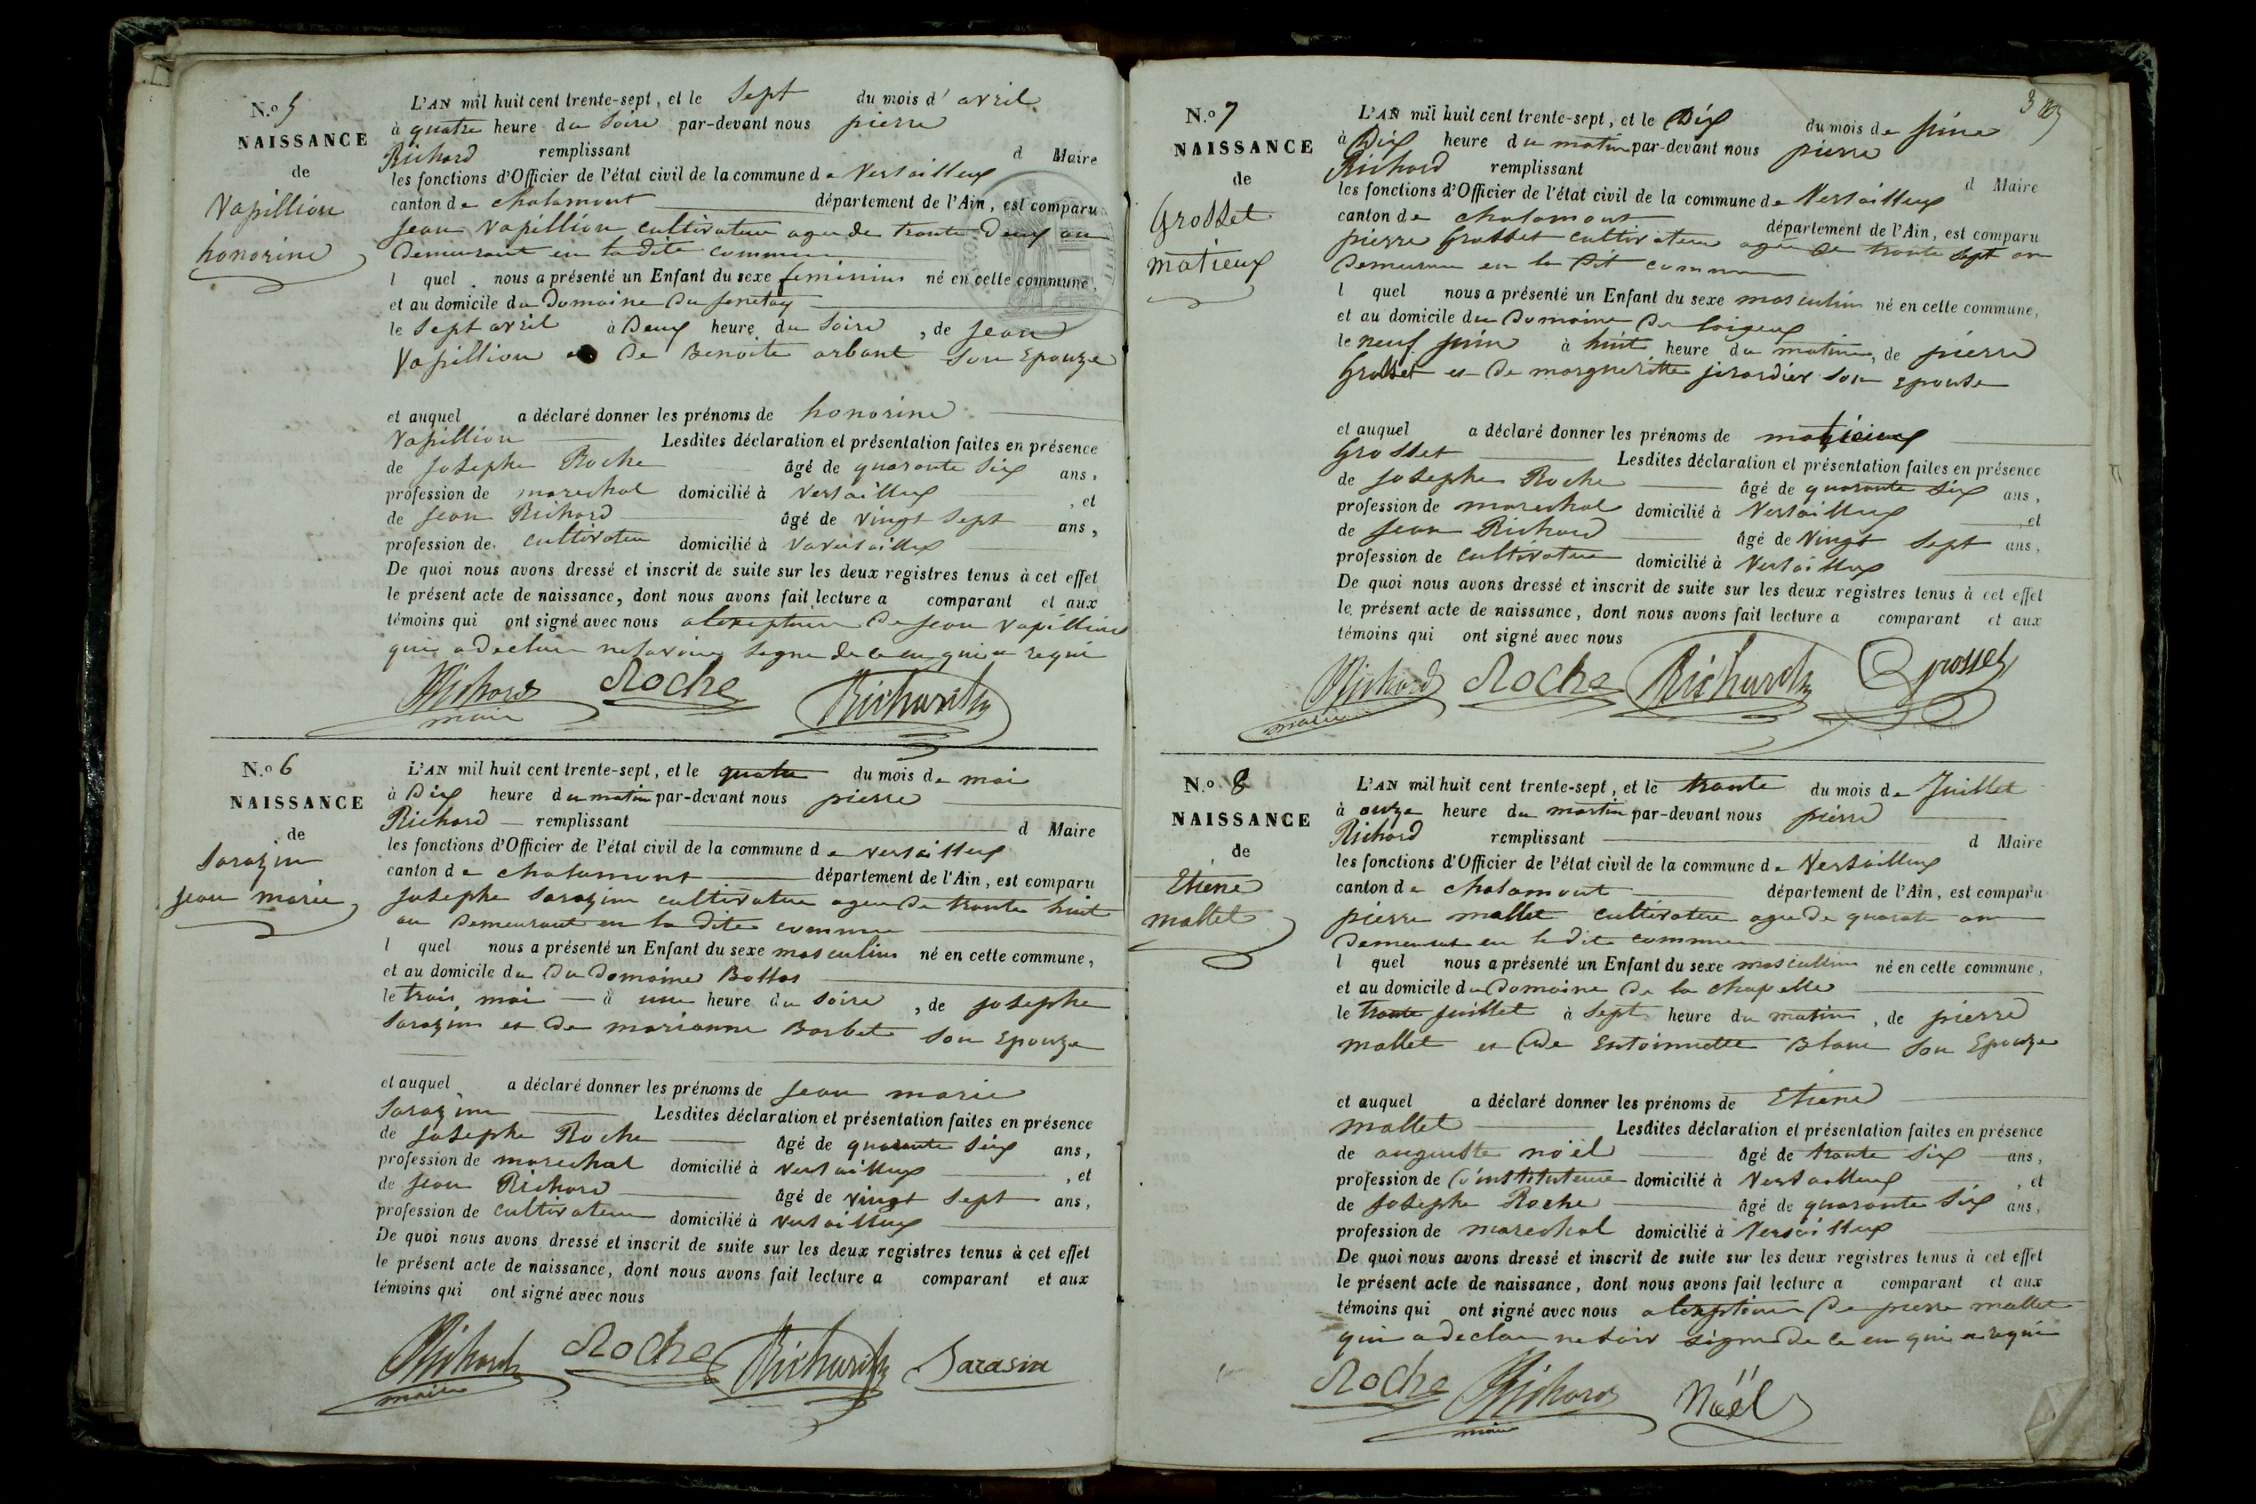 N.o 5
NAISSANCE
de
Vapillion
honorine
L'AN mil huit cent trente-sept, et le Sept du mois d' avril
à quatre heure du Soire par-devant nous pierre
Richard remplissant d Maire
les fonctions d'Officier de l'état civil de la commune de Versailleux
canton de chalamont département de l'Ain, est comparu
jean Vapillion cultivateur agee de trante Deux an
Demeurant en la dite commune
l quel nous a présenté un Enfant du sexe feminin né en cette commune,
et au domicile du Domaine du
le Sept avril à Deux heure du Soire, de jean
Vapillion et De Benoite arbant Son Epouze
et auquel a déclaré donner les prénoms de honorine
Vapillion Lesdites déclaration et présentation faites en présence
de josephe Roche âgé de quarante Six ans,
profession de marechal domicilié à Versailleux, et
de jean Richard âgé de vingt Sept ans,
profession de cultivateur domicilié à Vaversailleux
De quoi nous avons dressé et inscrit de suite sur les deux registres tenus à cet effet
le présent acte de naissance, dont nous avons fait lecture a comparant et aux
témoins qui ont signé avec nous De jean Vapillion
qui a Declare Signe de ce en qui a requi
Richard Roche Richard
maire
N.o 6
NAISSANCE
de
Sarazin
jean marie
L'AN mil huit cent trente-sept, et le quatre du mois de mai
à Dix heure du matin par-devant nous pierre
Richard remplissant d Maire
les fonctions d'Officier de l'état civil de la commune de versailleux
canton de chalamont département de l'Ain, est comparu
josephe Sarazin cultivateur agee De trante huit
an Demeurant en la dite commune
l quel nous a présenté un Enfant du sexe masculin né en cette commune,
et au domicile du Du Domaine Battas
le trois mai à une heure du Soire, de josephe
Sarazin et de marianne Barbet Son Epouze
et auquel a déclaré donner les prénoms de jean marie
Sarazin Lesdites déclaration et présentation faites en présence
de josephe Roche âgé de quarante Six ans,
profession de marechal domicilié à versailleux, et
de jean Richard âgé de vingt Sept ans,
profession de cultivateur domicilié à versailleux
De quoi nous avons dressé et inscrit de suite sur les deux registres tenus à cet effet
le présent acte de naissance, dont nous avons fait lecture a comparant et aux
témoins qui ont signé avec nous
Richard Roche Richard Sarasin
maire
N.o 7
NAISSANCE
de
Grosset
matieux
L'AN mil huit cent trente-sept, et le Dix du mois de juine
à Dix heure du matin par-devant nous pierre
Richard remplissant d Maire
les fonctions d'Officier de l'état civil de la commune de Versailleux
canton de chalamont département de l'Ain, est comparu
pierre Grosset cultivateur agee de trante sept an
Demeuran en la Dit commune
l quel nous a présenté un Enfant du sexe masculin né en cette commune,
et au domicile du Domaine De
le neuf juin à huit heure du matine, de pierre
Grosset et De marguerite jirardier Son epouse
et auquel a déclaré donner les prénoms de
Grosset Lesdites déclaration et présentation faites en présence
de josephe Roche âgé de quarante Six ans,
profession de marechal domicilié à Versailleux, et
de jean Richard âgé de Vingt Sept ans,
profession de cultivateur domicilié à Versailleux
De quoi nous avons dressé et inscrit de suite sur les deux registres tenus à cet effet
le présent acte de naissance, dont nous avons fait lecture a comparant et aux
témoins qui ont signé avec nous
Richard Roche Richard Grosset
maire
N.o 8
NAISSANCE
de
Etiene
mallet
L'AN mil huit cent trente-sept, et le trante du mois de Juillet
à onze heure du martin par-devant nous pierre
Richard remplissant d Maire
les fonctions d'Officier de l'état civil de la commune de Versailleux
canton de chalamont département de l'Ain, est comparu
pierre mallet cultivateur agee de an
Demeurant en la dite commune
l quel nous a présenté un Enfant du sexe masculin né en cette commune,
et au domicile du Domaine De la chapelle
le trante juillet à Sept heure du matin, de pierre
mallet et De Entoinnette Blanc Son Epouze
et auquel a déclaré donner les prénoms de Etiene
mallet Lesdites déclaration et présentation faites en présence
de auguste noël âgé de trante Six ans,
profession de domicilié à Versailleux, et
de Josephe Roche âgé de quarante Six ans,
profession de marechal domicilié à Versailleux
De quoi nous avons dressé et inscrit de suite sur les deux registres tenus à cet effet
le présent acte de naissance, dont nous avons fait lecture a comparant et aux
témoins qui ont signé avec nous De pierre mallet
qui a declare ne signe de ce en qui a requi
Roche Richard Noël
maire